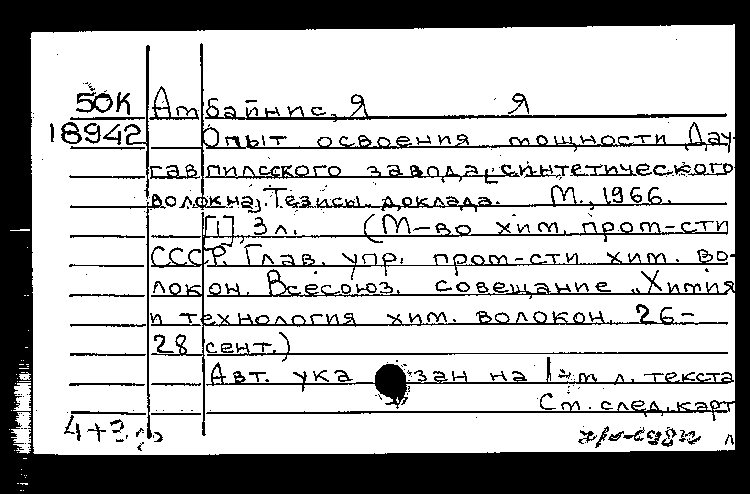 50К Амбайнис, Я Я
18942 Опыт освоения мощности Дау-
гавпилсского завода [синтетического
волокна]. Тезисы доклада. М., 1966.
[1], 3 л. (М-во хим. пром-сти
СССР. Глав. упр. пром-сти хим. во-
локон. Всесоюз. совещание „Химия
и технология хим. волокон. 26-
28 сент.)
Авт. указан на 1-м л. текста
См. след. карт
4+3